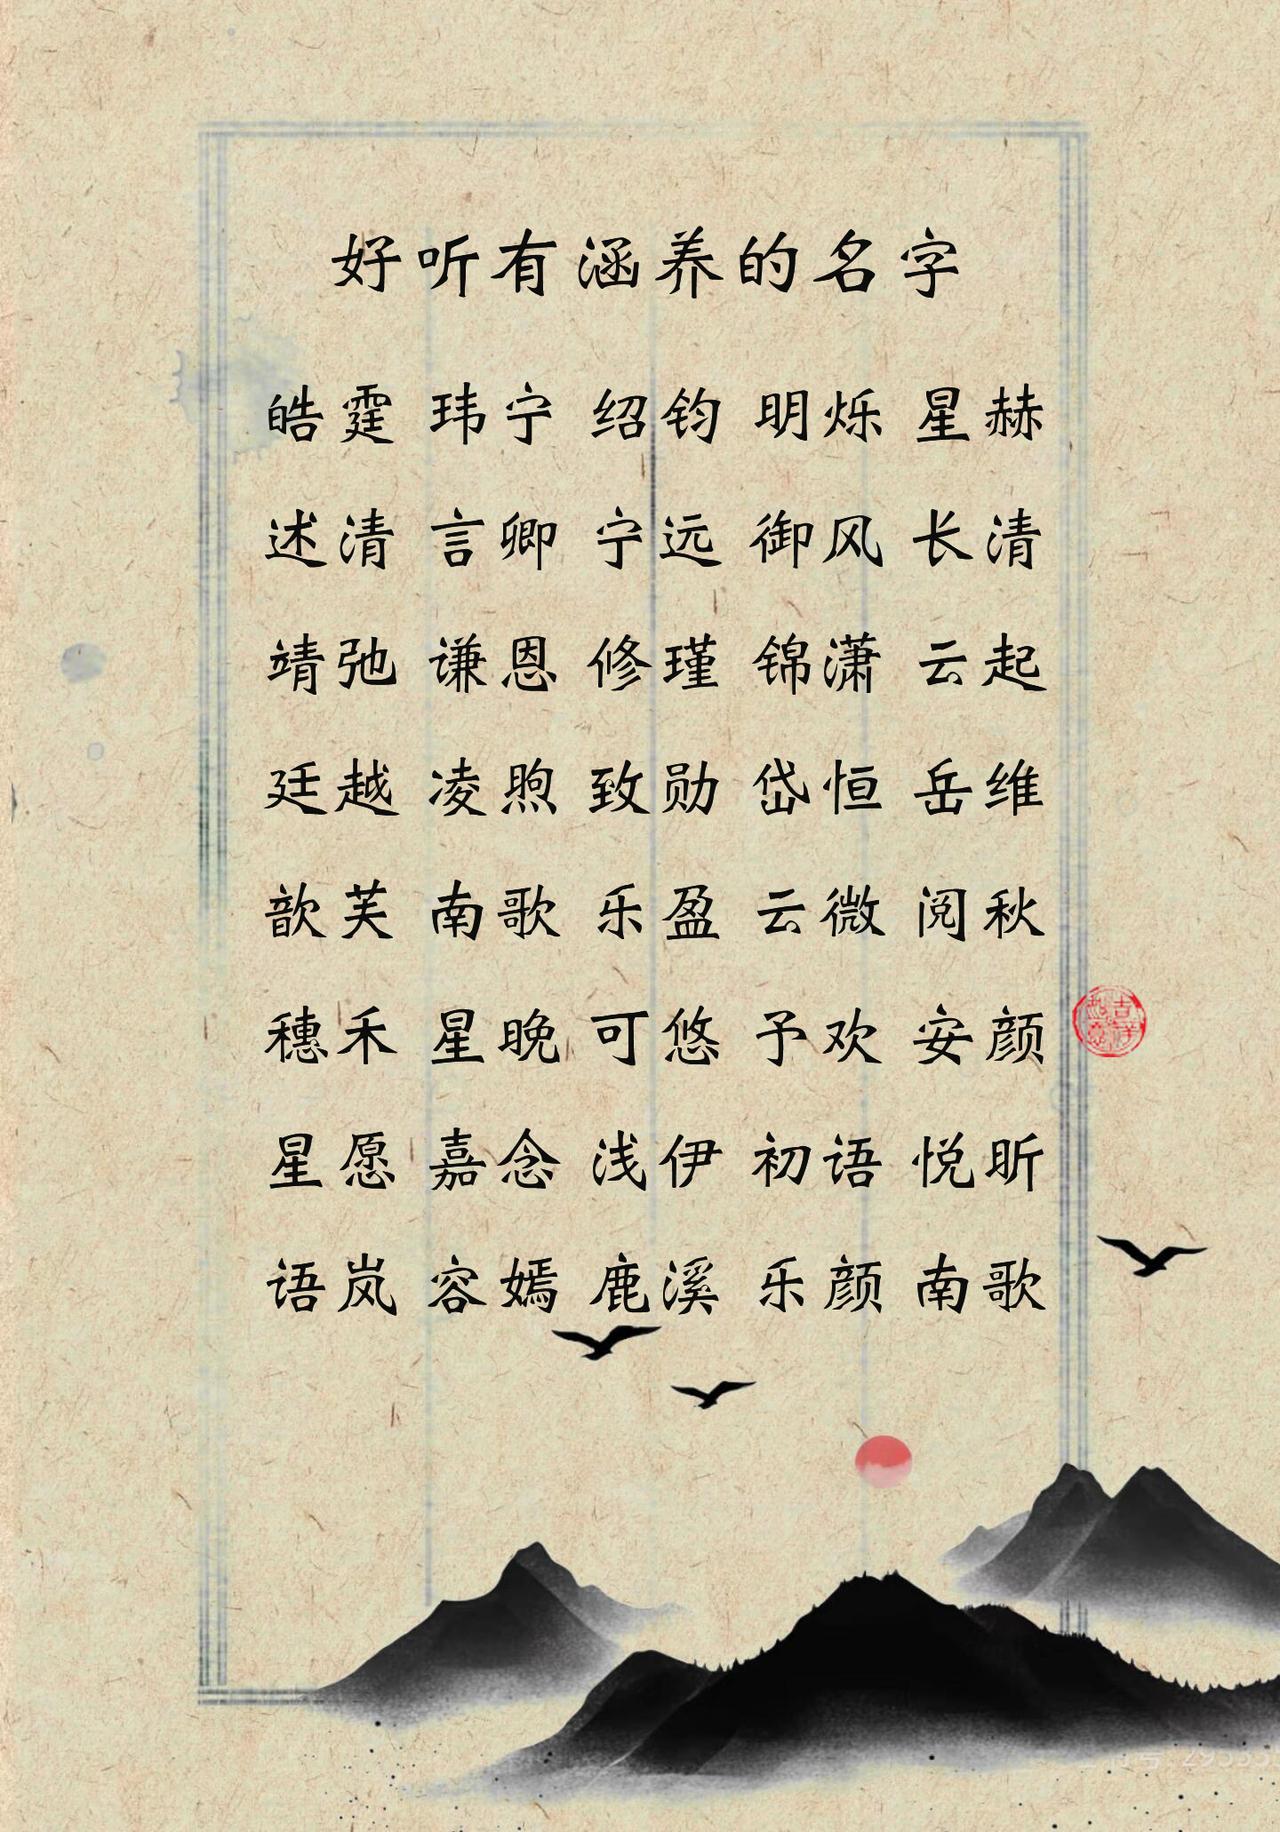 好听有涵养的名字
皓霆 玮宁 绍钧 明烁 星赫
述清 言卿 宁远 御风 长清
靖弛 谦恩 修瑾 锦潇 云起
廷越 凌煦 致勋 岱恒 岳维
歆芙 南歌 乐盈 云微 阅秋
穗禾 星晚 可悠 予欢 安颜
星愿 嘉念 浅伊 初语 悦昕
语岚 容嫣 鹿溪 乐颜 南歌
吉祥